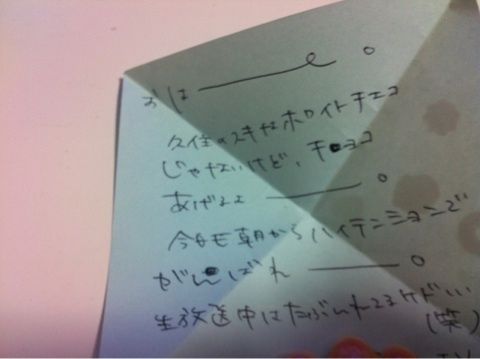 おはーーー。
久住のスキなホワイトチョコ
じゃないけど、チョコ
あげるよ ーーー。
今日も朝からハイテンションで
がんばれ ーーー。
生放送中はたぶんねてるケドいい
(笑)